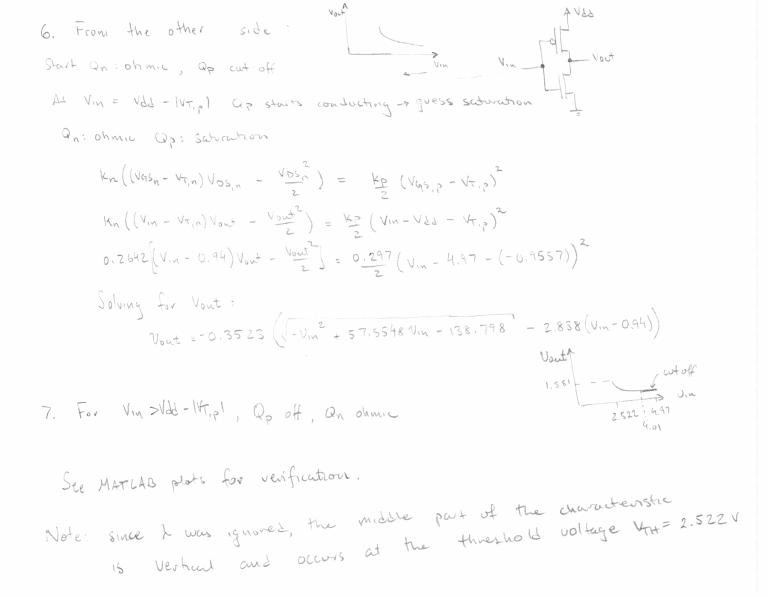 6. From the other side :
Vout
Vin
Vdd
Vin
Vout
Start Qn : ohmic , Qp cut off
At Vin = Vdd - |VT,p| Qp starts conducting → guess saturation
Qn : ohmic Qp : saturation
kn ((VGS,n - VT,n) VDS,n - VDS,n²/2) = kp/2 (VGS,p - VT,p)²
kn ((Vin - VT,n) Vout - Vout²/2) = kp/2 (Vin - Vdd - VT,p)²
0.2642 [(Vin - 0.94) Vout - Vout²/2] = 0.297/2 (Vin - 4.97 - (-0.9557))²
Solving for Vout :
Vout = -0.3523 (√(-Vin² + 57.5548 Vin - 138.798) - 2.838 (Vin - 0.94))
Vout
1.581
cut off
Vin
2.522 4.97
4.01
7. For Vin > Vdd - |VT,p| , Qp off , Qn ohmic
See MATLAB plots for verification.
Note: since λ was ignored, the middle part of the characteristic
is vertical and occurs at the threshold voltage VTH = 2.522 V